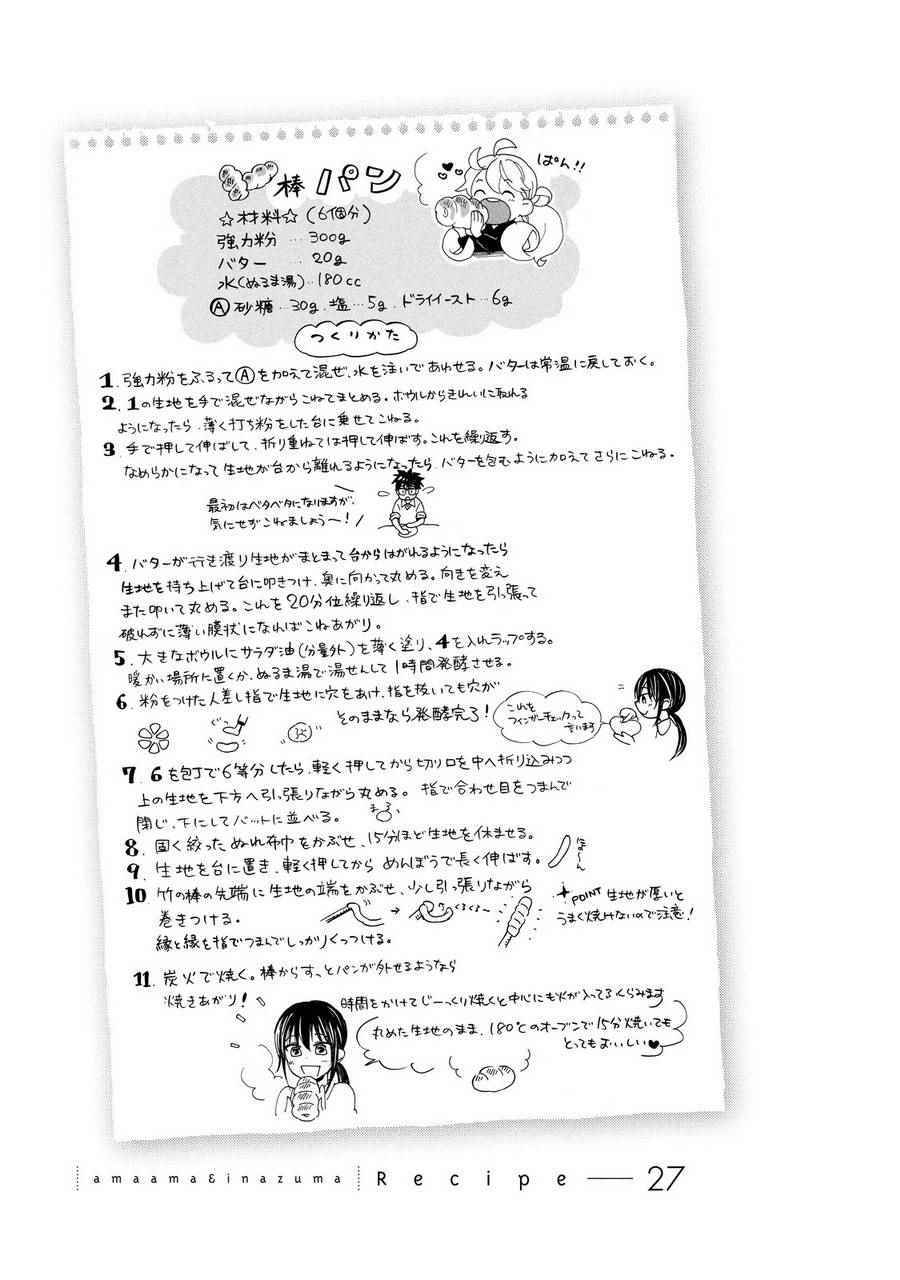 棒パン
ぱん!!
☆材料☆(6個分)
強力粉…300g
バター…20g
水(ぬるま湯)‥180cc
Ⓐ砂糖…30g、塩…5g、ドライイースト…6g
つくりかた
1. 強力粉をふるってⒶを加えて混ぜ、水を注いであわせる。バターは常温に戻しておく。
2. 1の生地を手で混ぜながらこねてまとめる。ボウルからきれいに取れる
ようになったら、薄く打ち粉をした台に乗せてこねる。
3. 手で押して伸ばして、折り重ねては押して伸ばす。これを繰り返す。
なめらかになって生地が台から離れるようになったら、バターを包むように加えてさらにこねる。
最初はベタベタになりますが、
気にせずこねましょう〜!
4. バターが行き渡り生地がまとまって台からはがれるようになったら
生地を持ち上げて台に叩きつけ、奥に向かって丸める。向きを変え
また叩いて丸める。これを20分位繰り返し、指で生地を引っ張って
破れずに薄い膜状になればこねあがり。
5. 大きなボウルにサラダ油(分量外)を薄く塗り、4を入れラップする。
暖かい場所に置くか、ぬるま湯で湯せんして1時間発酵させる。
6. 粉をつけた人差し指で生地に穴をあけ、指を抜いても穴が
そのままなら発酵完了!
これを
フィンガーチェックって
言います
7. 6を包丁で6等分したら、軽く押してから切り口を中へ折り込みつつ
上の生地を下方へ引っ張りながら丸める。指で合わせ目をつまんで
閉じ、下にしてバットに並べる。
まる
8. 固く絞ったぬれ布巾をかぶせ、15分ほど生地を休ませる。
9. 生地を台に置き、軽く押してからめんぼうで長く伸ばす。
10. 竹の棒の先端に生地の端をかぶせ、少し引っ張りながら
巻きつける。
くるくる〜
縁と縁を指でつまんでしっかりくっつける。
POINT 生地が厚いと
うまく焼けないので注意!
11. 炭火で焼く。棒からすっとパンが外せるようなら
焼きあがり!
時間をかけてじーっくり焼くと中心にも火が入ってふくらみます
丸めた生地のまま、180℃のオーブンで15分焼いても
とってもおいしい♥
amaama&inazuma Recipe 27